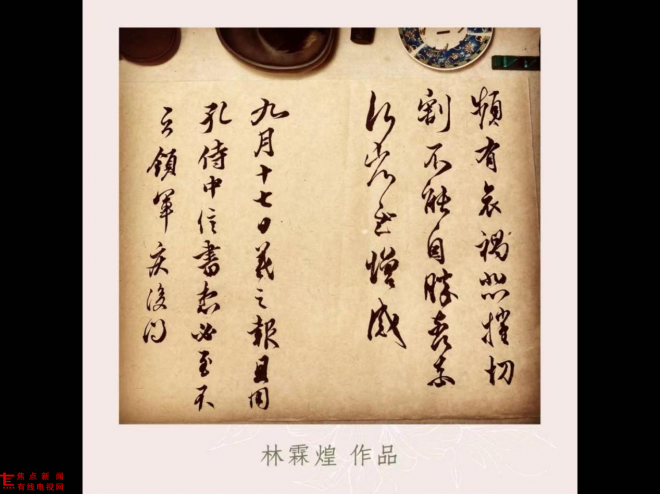 頻有哀禍悲摧切
割不能自勝奈何奈
何省慰增感
九月十七日羲之報且因
孔侍中信書想必至不
知領軍疾後問
林霖煌 作品
焦点新闻
有线电视网